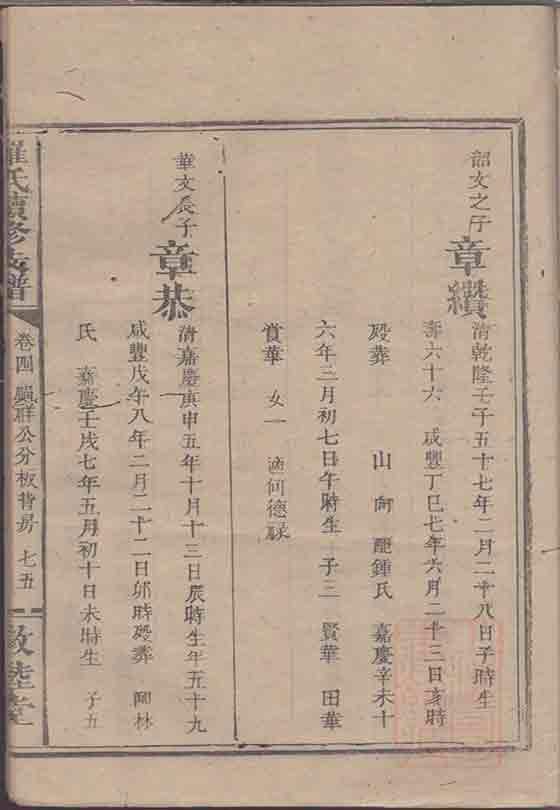 韶文之子
章纘
清乾隆壬子五十七年二月二十八日子時生
壽六十六 咸豐丁巳七年六月二十三日亥時
殁葬 山 向 配鍾氏 嘉慶辛未十
六年三月初七日午時生 子三 賢華 田華
賞華 女一 適何德祿
華文長子
章恭
清嘉慶庚申五年十月十三日辰時生年五十九
咸豐戊午八年二月二十二日卯時殁葬 林
氏 嘉慶壬戌七年五月初十日未時生 子五
羅氏續修支譜
卷四 祥公分板背房 七五
敦睦堂